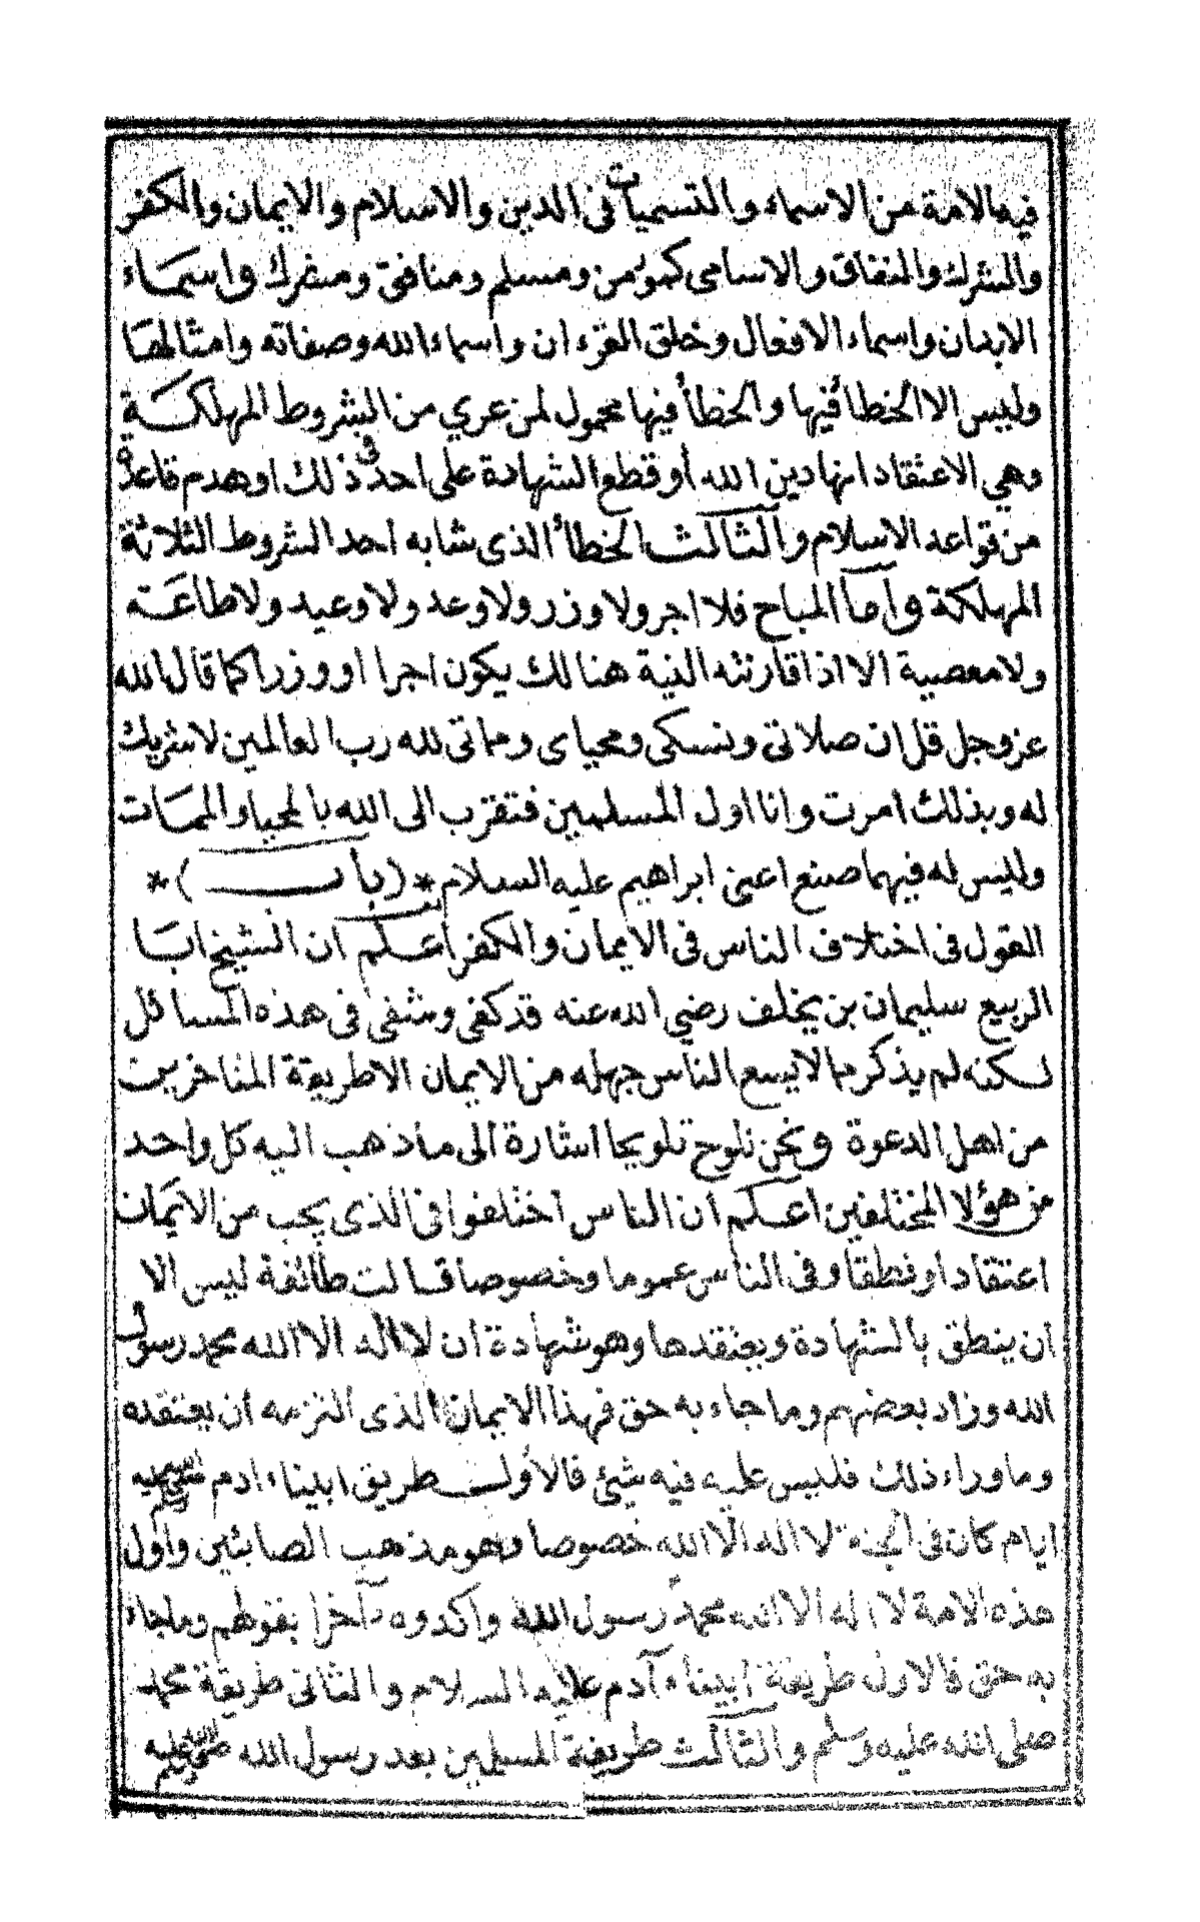 فيه الامة من الاسماء والتسميات في الدين والاسلام والايمان والكفر
والشرك والنفاق والاسامى كمومن ومسلم ومنافق ومشرك واسماء
الابدان واسماء الافعال وخلق القرءان واسماء الله وصفاته وامثالها
وليس الا الخطأ فيها والخطأ فيها محمول لمن عري من الشروط المهلكة
وهي الاعتقاد انها دين الله أو قطع الشهادة على احد في ذلك او هدم قاعدة
من قواعد الاسلام والثالث الخطأ الذى شابه احد الشروط الثلاثة
المهلكة واما المباح فلا اجر ولا وزر ولا وعد ولا وعيد ولا طاعة
ولا معصية الا اذا قارنته النية هنالك يكون اجرا او وزرا كما قال الله
عز وجل قل ان صلاتى ونسكى ومحياى ومماتى لله رب العالمين لا شريك
له وبذلك امرت وانا اول المسلمين فتقرب الى الله بالمحيا والممات
وليس له فيهما صنع اعنى ابراهيم عليه السلام * (باب) *
القول في اختلاف الناس في الايمان والكفر اعلم ان الشيخ ابا
الربيع سليمان بن يخلف رضي الله عنه قد كفى وشفى في هذه المسائل
لكنه لم يذكر ما لا يسع الناس جهله من الايمان الا طريقة المتاخرين
من اهل الدعوة ونحن نلوح تلويحا اشارة الى ما ذهب اليه كل واحد
من هؤلا المختلفين اعلم ان الناس اختلفوا في الذى يجب من الايمان
اعتقادا ونطقا وفى الناس عموما وخصوصا قالت طائفة ليس الا
ان ينطق بالشهادة ويعتقدها وهو شهادة ان لا اله الا الله محمد رسول
الله وزاد بعضهم وما جاء به حق فهذا الايمان الذى التزمه ان يعتقده
وما وراء ذلك فليس عليه فيه شئ فالاول طريق ابيناء ادم
ايام كان في الجنة لا اله الا الله خصوصا وهو مذهب الصابئين واول
هذه الامة لا اله الا الله محمد رسول الله واكدوه آخرا بقولهم وما جاء
به حق فالاول طريقة ابيناء آدم عليه السلام والثانى طريقة محمد
صلى الله عليه وسلم والثالث طريقة المسلمين بعد رسول الله صلى الله عليه وسلم